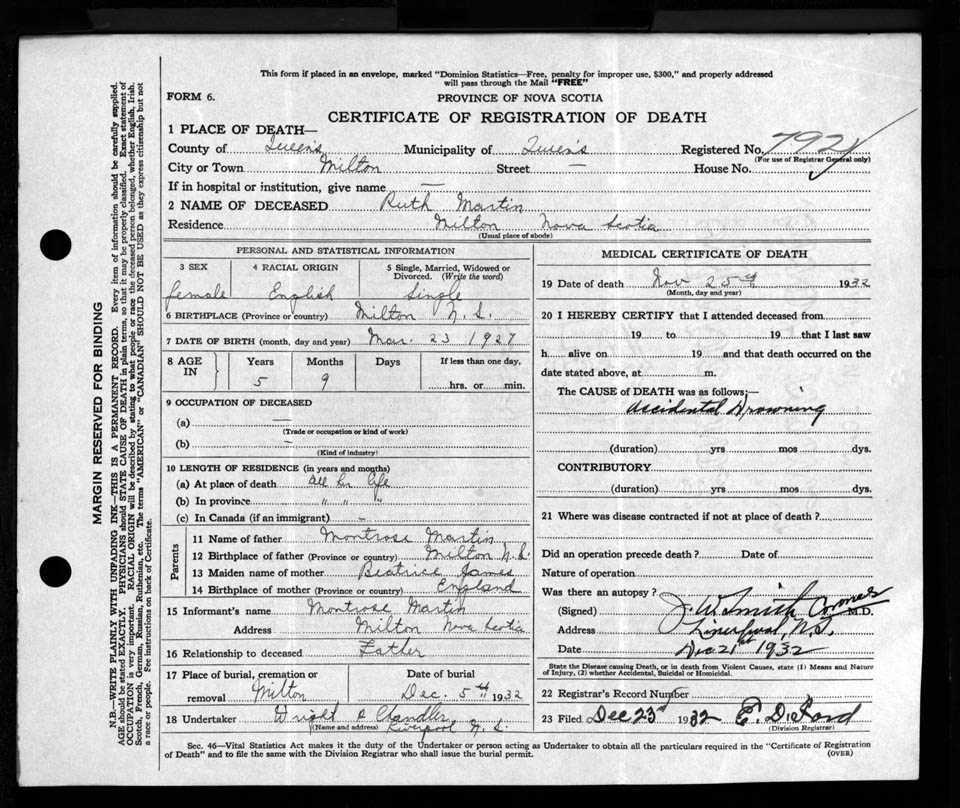 This form if placed in an envelope, marked "Dominion Statistics—Free, penalty for improper use, $300," and properly addressed
will pass through the Mail "FREE"
FORM 6.
PROVINCE OF NOVA SCOTIA
CERTIFICATE OF REGISTRATION OF DEATH
1 PLACE OF DEATH—
County of Queens Municipality of Queen's Registered No. 7921
(For use of Registrar General only)
City or Town Milton Street — House No.
If in hospital or institution, give name —
2 NAME OF DECEASED Ruth Martin
Residence Milton Nova Scotia
(Usual place of abode)
PERSONAL AND STATISTICAL INFORMATION
3 SEX 4 RACIAL ORIGIN 5 Single, Married, Widowed or
Divorced. (Write the word)
female English Single
6 BIRTHPLACE (Province or country) Milton N.S.
7 DATE OF BIRTH (month, day and year) Mar. 23 1927
8 AGE IN Years Months Days If less than one day,
5 9 hrs. or min.
9 OCCUPATION OF DECEASED
(a) —
(Trade or occupation or kind of work)
(b) —
(Kind of industry)
10 LENGTH OF RESIDENCE (in years and months)
(a) At place of death all her life
(b) In province " " "
(c) In Canada (if an immigrant) —
Parents
11 Name of father Montrose Martin
12 Birthplace of father (Province or country) Milton N.S.
13 Maiden name of mother Beatrice James
14 Birthplace of mother (Province or country) England
15 Informant's name Montrose Martin
Address Milton Nova Scotia
16 Relationship to deceased Father
17 Place of burial, cremation or Date of burial
removal Milton Dec. 5th 1932
18 Undertaker Wright & Chandler
(Name and address) Liverpool N.S.
MEDICAL CERTIFICATE OF DEATH
19 Date of death Nov 25th 1932
(Month, day and year)
20 I HEREBY CERTIFY that I attended deceased from
19 to 19 that I last saw
h alive on 19 and that death occurred on the
date stated above, at m.
The CAUSE of DEATH was as follows;—
Accidental Drowning
(duration) yrs mos dys.
CONTRIBUTORY
(duration) yrs mos dys.
21 Where was disease contracted if not at place of death?
Did an operation precede death? Date of
Nature of operation
Was there an autopsy?
(Signed) J. W. Smith Coroner M.D.
Address Liverpool, N.S.
Date Dec 21st 1932
State the Disease causing Death, or in death from Violent Causes, state (1) Means and Nature
of Injury, (2) whether Accidental, Suicidal or Homicidal.
22 Registrar's Record Number
23 Filed Dec 23d 1932
(Division Registrar)
Sec. 46—Vital Statistics Act makes it the duty of the Undertaker or person acting as Undertaker to obtain all the particulars required in the "Certificate of Registration
of Death" and to file the same with the Division Registrar who shall issue the burial permit. (OVER)
MARGIN RESERVED FOR BINDING
N.B.—WRITE PLAINLY WITH UNFADING INK—THIS IS A PERMANENT RECORD. Every item of information should be carefully supplied.
AGE should be stated EXACTLY. PHYSICIANS should STATE CAUSE OF DEATH in plain terms, so that it may be properly classified. Exact statement of
OCCUPATION is very important. RACIAL ORIGIN will be described by stating to what people or race the deceased person belonged, whether English, Irish.
Scotch, French, German, Russian, Ruthenian, etc. The terms "AMERICAN" or "CANADIAN" SHOULD NOT BE USED as they express citizenship but not
a race or people. See instructions on back of Certificate.